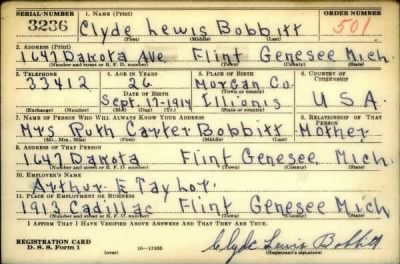 SERIAL NUMBER 1. NAME (Print) ORDER NUMBER
3236 Clyde Lewis Bobbitt 501
(First) (Middle) (Last)
2. ADDRESS (Print)
1647 Dakota Ave Flint Genesee Mich.
(Number and street or R. F. D. number) (Town) (County) (State)
3. TELEPHONE 4. AGE IN YEARS 5. PLACE OF BIRTH 6. COUNTRY OF CITIZENSHIP
33412 26 Morgan Co.
DATE OF BIRTH (Town or county)
Sept. 17-1914 Illionis U S A.
(Exchange) (Number) (Mo.) (Day) (Yr.) (State or country)
7. NAME OF PERSON WHO WILL ALWAYS KNOW YOUR ADDRESS 8. RELATIONSHIP OF THAT PERSON
Mrs. Ruth Carter Bobbitt Mother
(Mr., Mrs., Miss) (First) (Middle) (Last)
9. ADDRESS OF THAT PERSON
1647 Dakota Flint Genesee Mich.
(Number and street or R. F. D. number) (Town) (County) (State)
10. EMPLOYER'S NAME
Arthur E Taylor.
11. PLACE OF EMPLOYMENT OR BUSINESS
1913 Cadillac Flint Genesee Mich
(Number and street or R. F. D. number) (Town) (County) (State)
I AFFIRM THAT I HAVE VERIFIED ABOVE ANSWERS AND THAT THEY ARE TRUE.
REGISTRATION CARD
D. S. S. Form 1 (over) 16—17105 Clyde Lewis Bobbitt
(Registrant's signature)